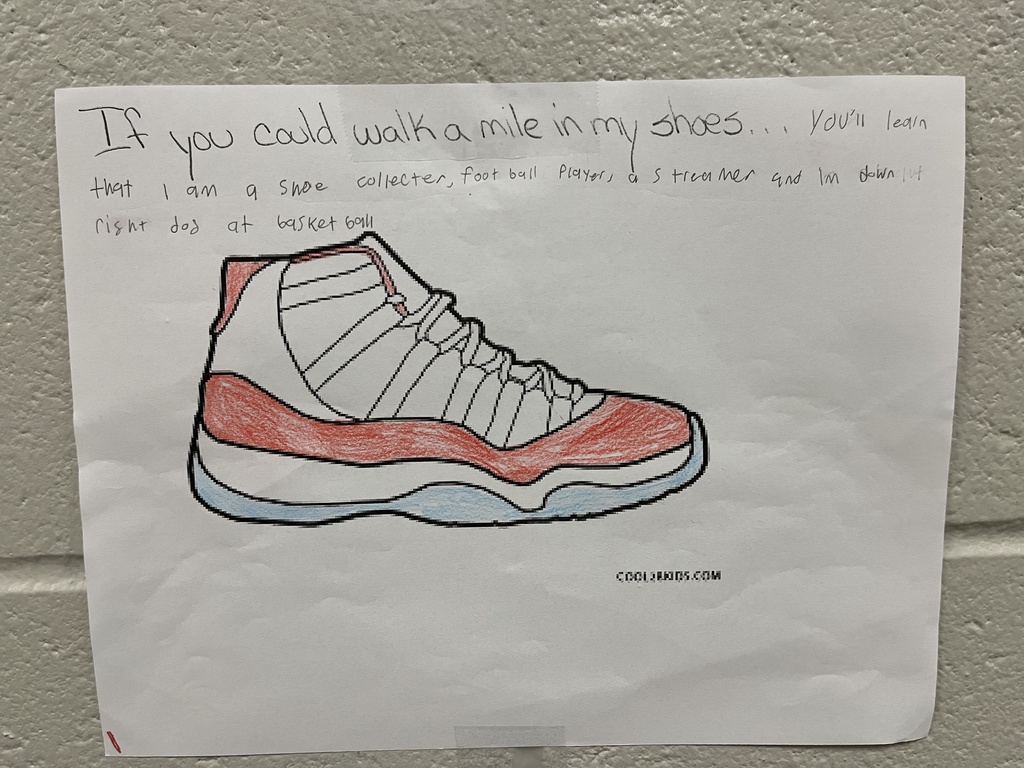 If you could walk a mile in my shoes... You'll learn
that I am a shoe collecter, foot ball Player, a streamer and Im down
right dog at basket ball
COOL2BKIDS.COM